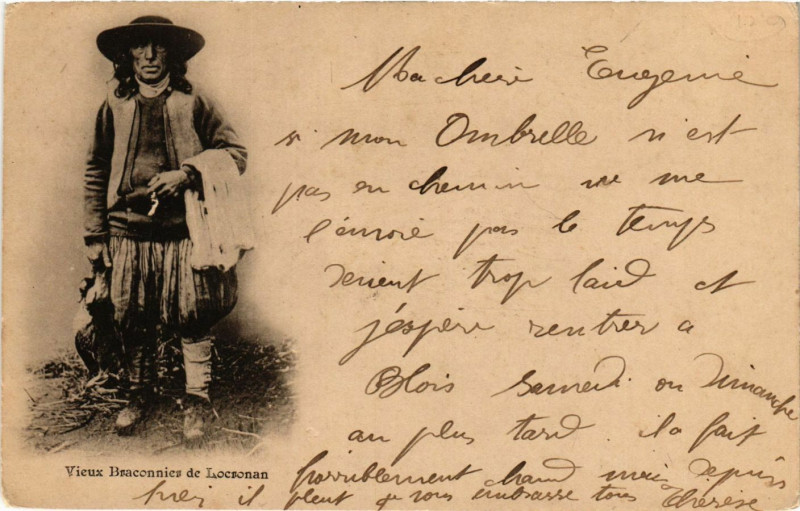 Ma chère Eugenie
si mon Ombrelle n'est
pas en chemin ne me
l'envoie pas le temps
devient trop laid et
j'éspère rentrer a
Blois Samedi ou Dimanche
au plus tard. il a fait
horriblement chaud mais depuis
hier il pleut je vous embrasse tous Thérèse
Vieux Braconnier de Locronan